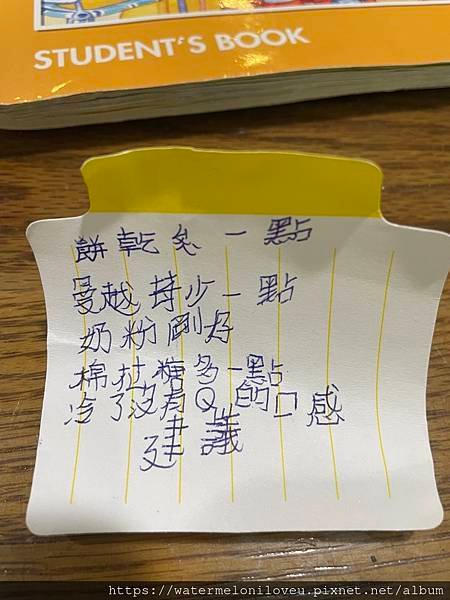 STUDENT'S BOOK
餅乾多一點
曼越莓少一點
奶粉剛好
棉拉糖多一點
冷了沒有Q的口感
建議
https://watermeloniloveu.pixnet.net/album